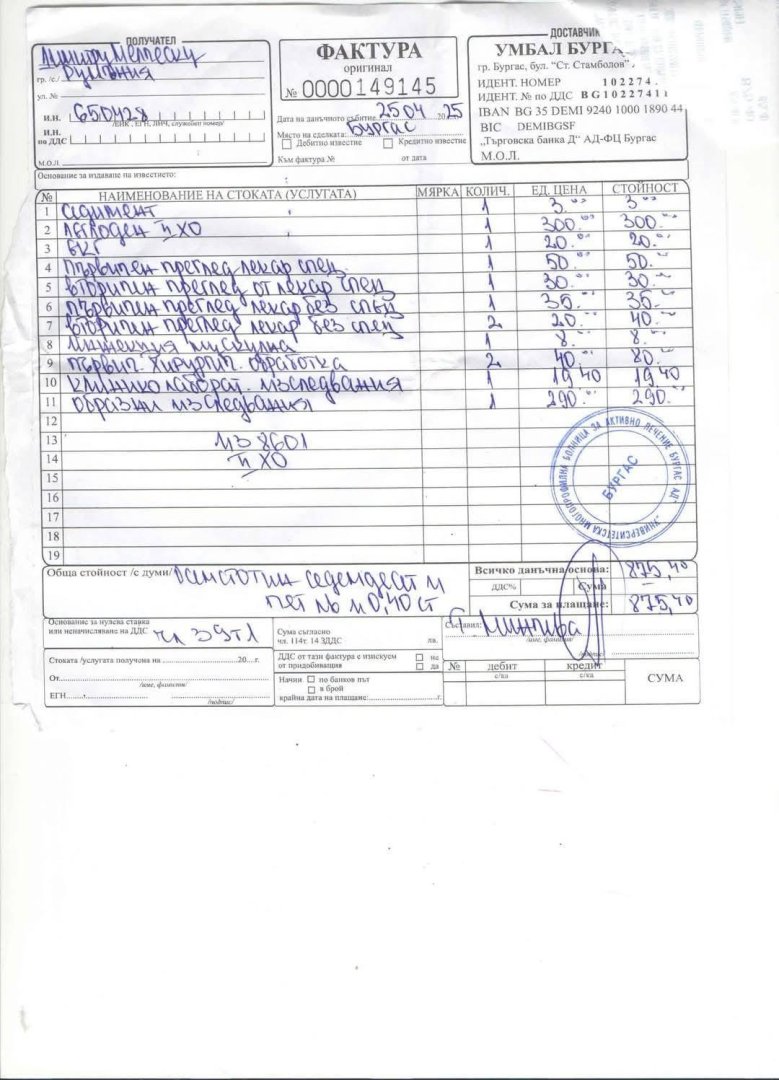 ПОЛУЧАТЕЛ
Румъния
гр. /с./
ул. №
И.Н. 650428
/ЕИК , ЕГН, ЛНЧ, служебен номер/
И.Н.
по ДДС
М.О.Л.
ФАКТУРА
оригинал
№ 0000149145
Дата на данъчното събитие 25 04 2025
Място на сделката: Бургас
Дебитно известие Кредитно известие
Към фактура № от дата
ДОСТАВЧИК
УМБАЛ БУРГА
гр. Бургас, бул. "Ст. Стамболов"
ИДЕНТ. НОМЕР 102274
ИДЕНТ. № по ДДС BG10227411
IBAN BG 35 DEMI 9240 1000 1890 44
BIC DEMIBGSF
„Търговска банка Д“ АД-ФЦ Бургас
М.О.Л.
Основание за издаване на известието:
№ НАИМЕНОВАНИЕ НА СТОКАТА (УСЛУГАТА) МЯРКА КОЛИЧ. ЕД. ЦЕНА СТОЙНОСТ
1 седимент 1 3.00 3.00
2 леглоден ІІ ХО 1 300.00 300.
3 ЕКГ 1 20.00 20.
4 първичен преглед лекар спец. 1 50. 50.
5 вторичен преглед от лекар спец 1 30. 30.
6 първичен преглед лекар без спец 1 35. 35.
7 вторичен преглед лекар без спец 2 20. 40.
8 инжекция мускулна 1 8. 8.
9 първич. хирургич. обработка 2 40. 80.
10 клинико лаборат. изследвания 1 19 40 19 40
11 образни изследвания 1 290. 290.
12
13 ИЗ 8601
14 ІІ ХО
15
16
17
18
19
"УНИВЕРСИТЕТСКА МНОГОПРОФИЛНА БОЛНИЦА ЗА АКТИВНО ЛЕЧЕНИЕ БУРГАС АД"
БУРГАС
Обща стойност /с думи/ осемстотин седемдесет и
пет лв и 0,40 ст
Всичко данъчна основа: 875,40
ДДС% Сума
Сума за плащане: 875,40
Основание за нулева ставка
или неначисляване на ДДС чл 39 т1
Сума съгласно
чл. 114т. 14 ЗДДС лв.
Съставил:
/име, фамилия/
/подпис/
Стоката /услугата получена на 20 г.
От
/име, фамилия/
ЕГН
/подпис/
ДДС от тази фактура е изискуем не
от придобиващия да
Начин по банков път
в брой
крайна дата на плащане: г.
№ дебит кредит СУМА
с/ка с/ка